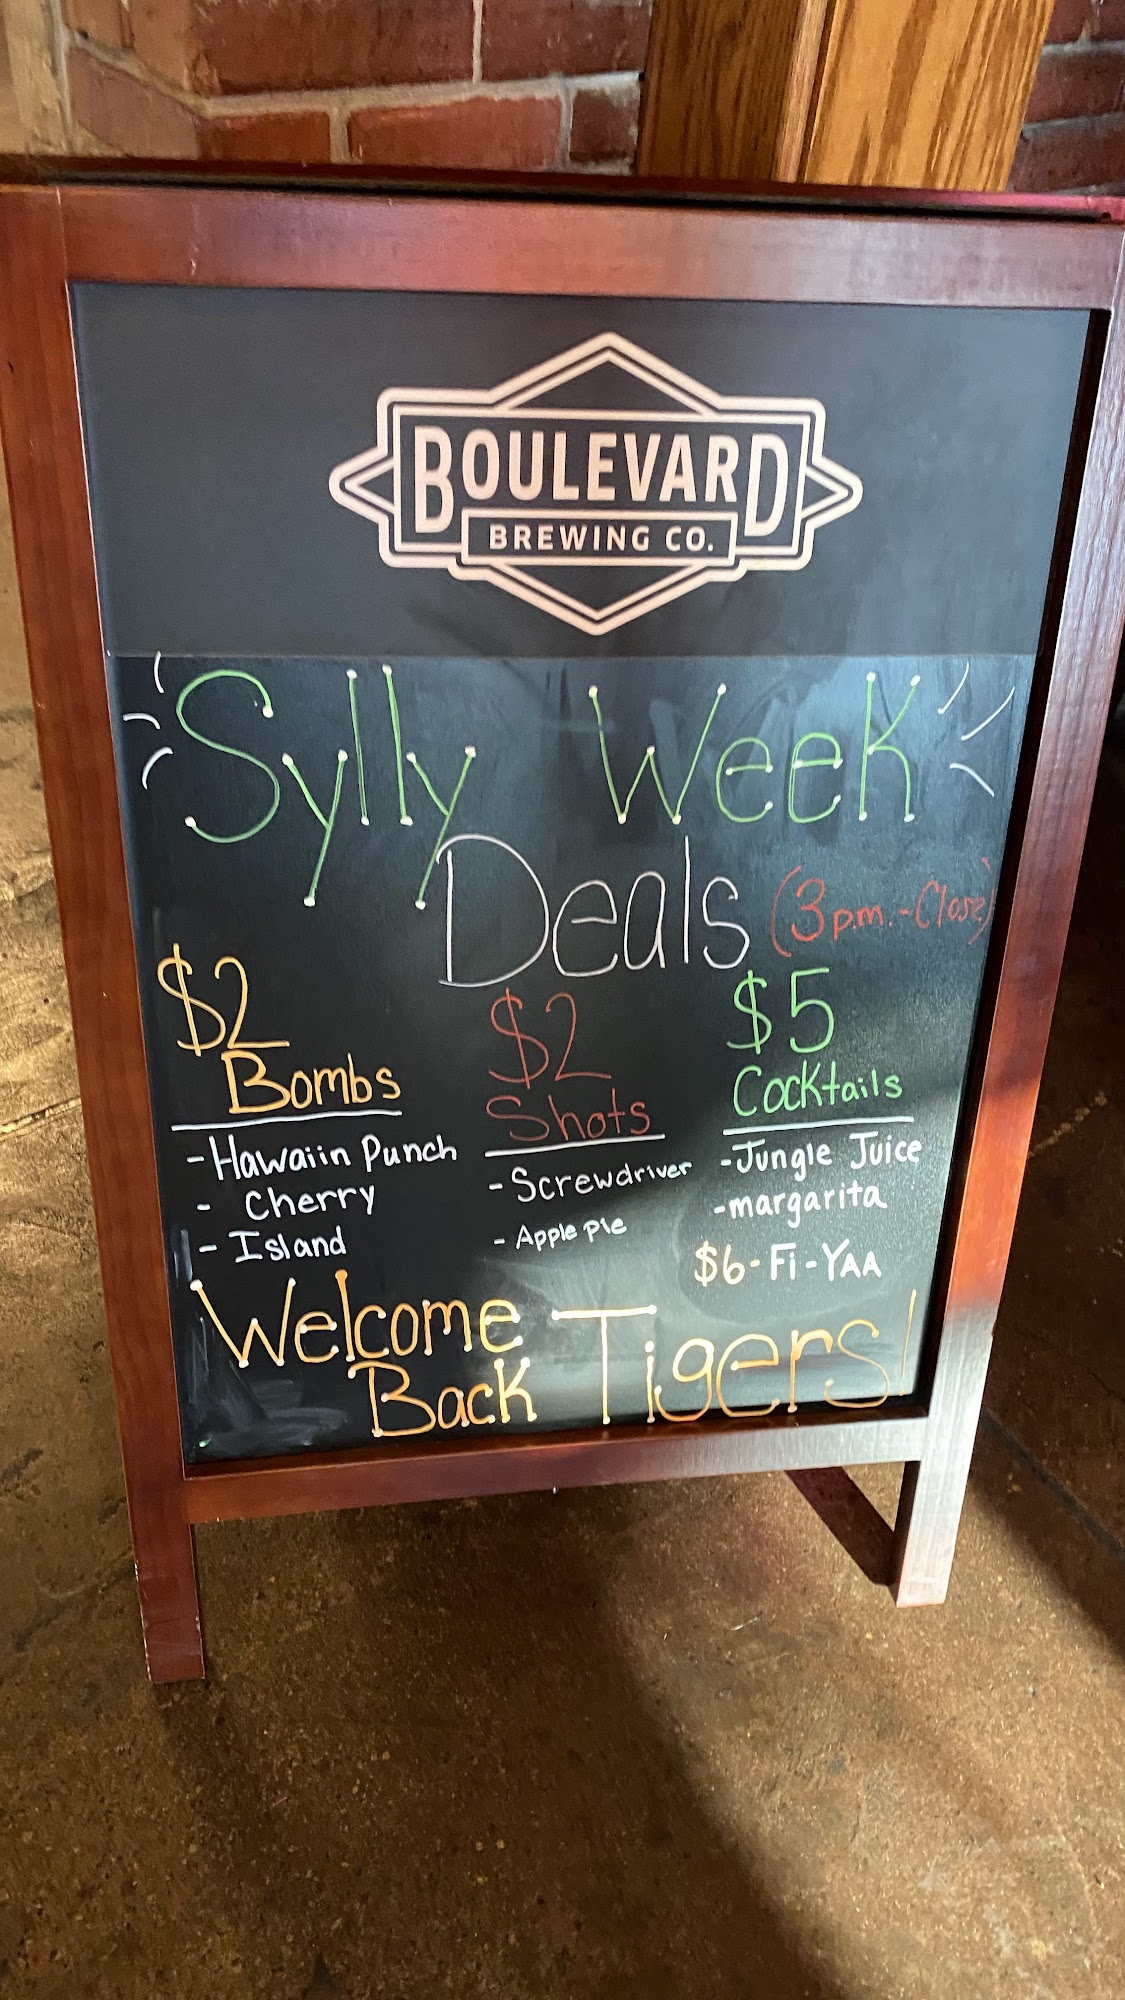 BOULEVARD
BREWING CO.
Sylly Week
Deals (3p.m.-Close)
$2
Bombs
-Hawaiin Punch
- Cherry
- Island
$2
Shots
-Screwdriver
- Apple pie
$5
Cocktails
-Jungle Juice
-margarita
$6-Fi-YAA
Welcome
Back Tigers!